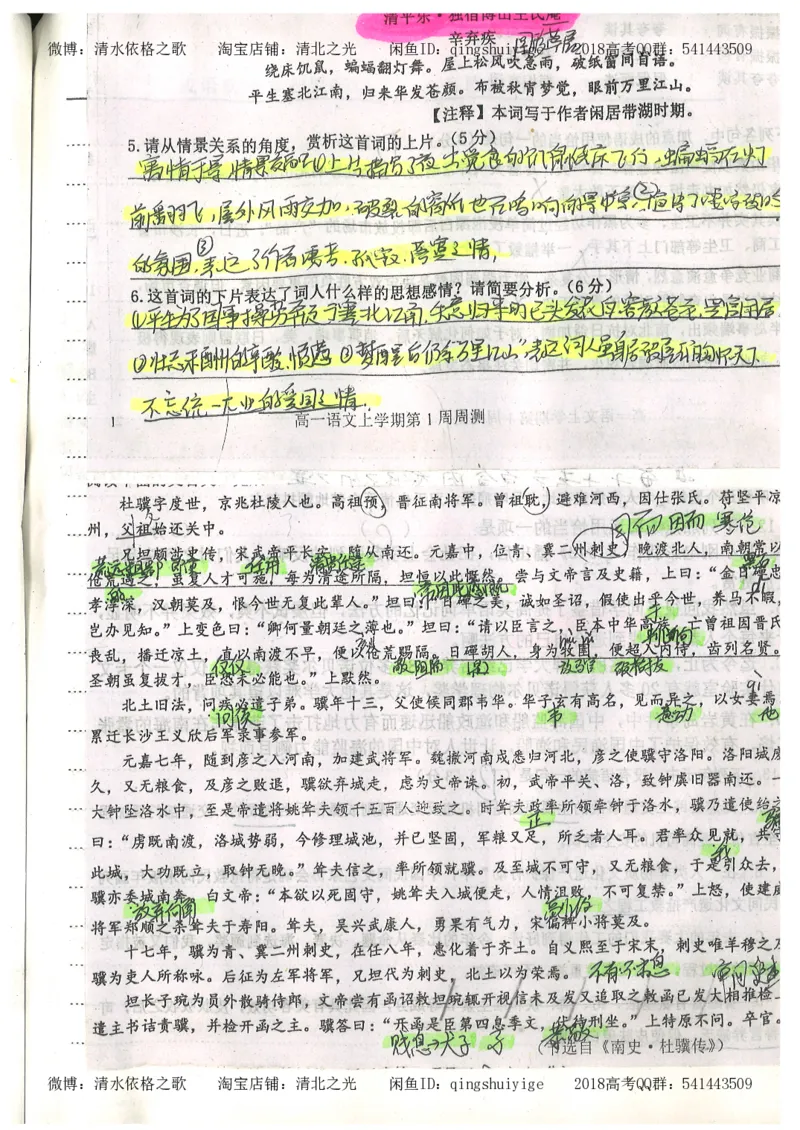 清平乐·独宿博山王氏庵
微博：清水依格之歌 淘宝店铺：清北之光 闲鱼ID：qingshuiyige 2018高考QQ群：541443509
辛弃疾
绕床饥鼠，蝙蝠翻灯舞。屋上松风吹急雨，破纸窗间自语。
平生塞北江南，归来华发苍颜。布被秋宵梦觉，眼前万里江山。
【注释】本词写于作者闲居带湖时期。
5.请从情景关系的角度，赏析这首词的上片。（5分）
寓情于景，情景交融①上片描写了夜出觅食的饥鼠绕床飞行，蝙蝠在灯
前翻飞，屋外风雨交加，破裂的窗纸也在鸣响的情景②
的氛围③表达了作者凄苦、孤寂、落寞之情。
6.这首词的下片表达了词人什么样的思想感情？请简要分析。（6分）
①平生为了国事操劳奔波于塞北江南，失意归来时已头发花白、容颜苍老
②壮志未酬的辛酸、惆怅 ③梦醒里后仍念"万里江山"
不忘统一大业的爱国之情。
1 高一语文上学期第1周周测
杜骥字度世，京兆杜陵人也。高祖预，晋征南将军。曾祖耽，避难河西，因仕张氏。苻坚平凉
州，父祖始还关中。
因而 因而 寒伧
兄坦颇涉史传，宋武帝平长安，随从南还。元嘉中，位青、冀二州刺史，晚渡北人，南朝常以
伧荒遇之，虽复人才可施，每为清途所隔，坦恒以此慨然。尝与文帝言及史籍，上曰："金日磾忠
孝淳深，汉朝莫及，恨今世无复此辈人。"坦曰："日磾之美，诚如圣诏，假使出乎今世，养马不暇，
岂办见知。"上变色曰："卿何量朝廷之薄也。"坦曰："请以臣言之，臣本中华高族，亡曾祖因晋氏
丧乱，播迁凉土，直以南渡不早，便以伧荒赐隔。日磾胡人，身为牧圉，便超入内侍，齿列名贤。
仅仅
圣朝虽复拔才，臣恐未必能也。"上默然。
北土旧法，问疾必遣子弟。骥年十三，父使候同郡韦华。华子玄有高名，见而异之，以女妻焉
问候
累迁长沙王义欣后军录事参军。
元嘉七年，随到彦之入河南，加建武将军。魏撤河南戍悉归河北，彦之使骥守洛阳。洛阳城废
久，又无粮食，及彦之败退，骥欲弃城走，虑为文帝诛。初，武帝平关、洛，致钟虡旧器南还。一
大钟坠洛水中，至是帝遣将姚耸夫领千五百人迎致之。时耸夫政率所领牵钟于洛水，骥乃遣使绐之
正
曰："虏既南渡，洛城势弱，今修理城池，并已坚固，军粮又足，所乏者人耳。君率众见就，共守
我
此城，大功既立，取钟无晚。"耸夫信之，率所领就骥。及至城不可守，又无粮食，于是引众去，
骥亦委城南奔。白文帝："本欲以死固守，姚耸夫入城便走，人情沮败，不可复禁。"上怒，使建威
将军郑顺之杀耸夫于寿阳。耸夫，吴兴武康人，勇果有气力，宋偏裨小将莫及。
十七年，骥为青、冀二州刺史，在任八年，惠化着于齐土。自义熙至于宋末，刺史唯羊穆之及
骥为吏人所称咏。后征为左军将军，兄坦代为刺史，北土以为荣焉。
坦长子琬为员外散骑侍郎，文帝尝有函诏敕坦琬辄开视信未及发又追取之敕函已发大相推检
遣主书诘责骥，并检开函之主。骥答曰："开函是臣第四息季文，伏待刑坐。"上特原不问。卒官。
（节选自《南史·杜骥传》）
微博：清水依格之歌 淘宝店铺：清北之光 闲鱼ID：qingshuiyige 2018高考QQ群：541443509